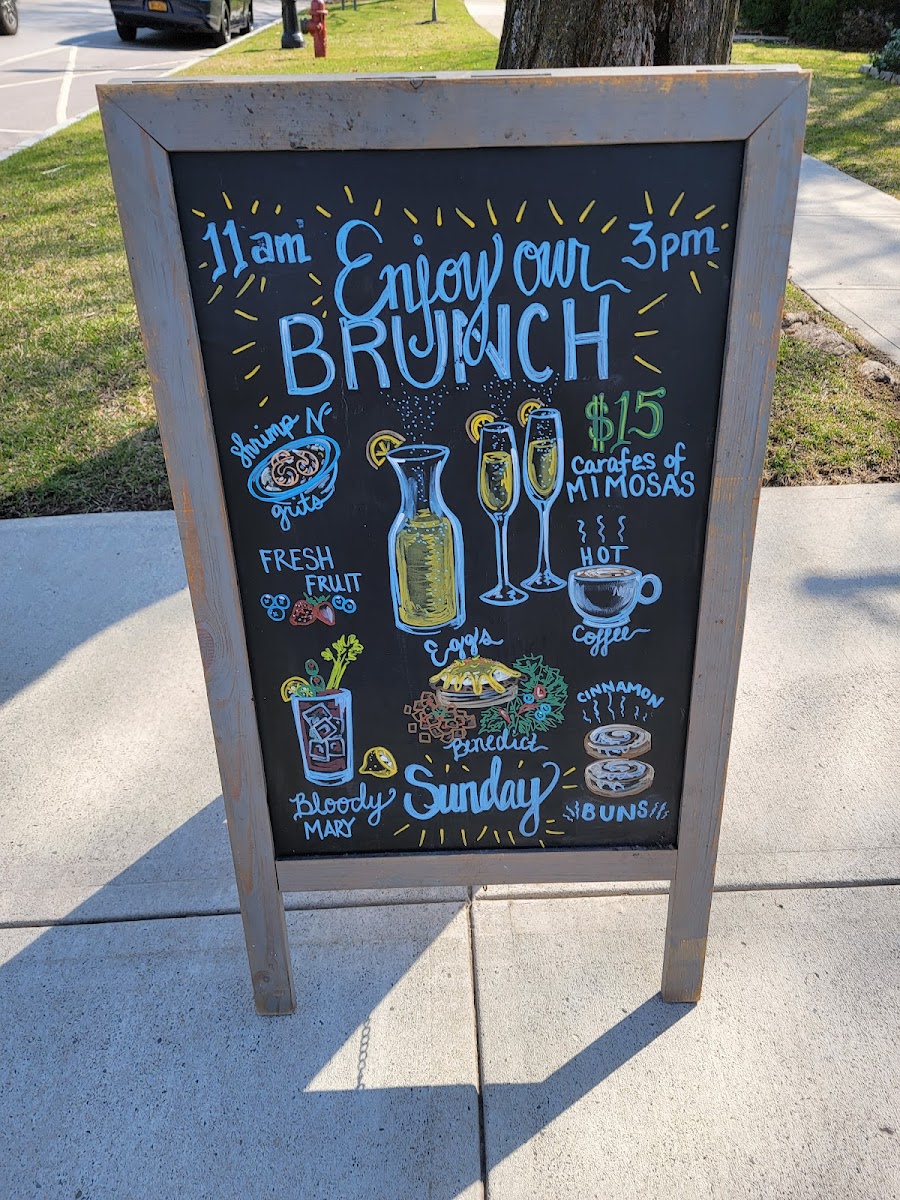 11am
3pm
Enjoy our
BRUNCH
Shrimp N'
grits
$15
Carafes of
MIMOSAS
FRESH
FRUIT
HOT
Coffee
Eggs
Benedict
CINNAMON
BUNS
Bloody
MARY
Sunday